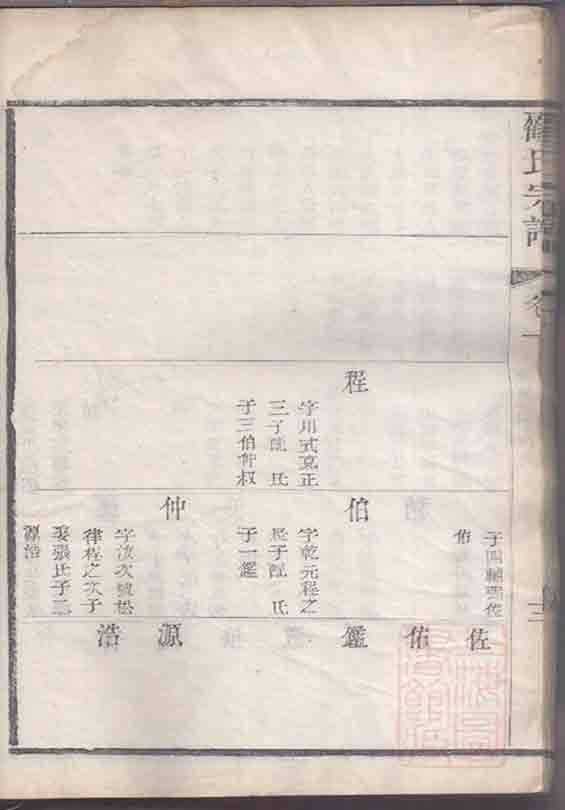 氏宗譜
卷一
程
字用式克正
三子配 氏
子三伯仲叔
伯
仲
子四輔弼佐
佑
字乾元程之
長子配 氏
子一鑑
字汝次號松
律程之次子
娶張氏子二
源浩
佐
佑
鑑
源
浩